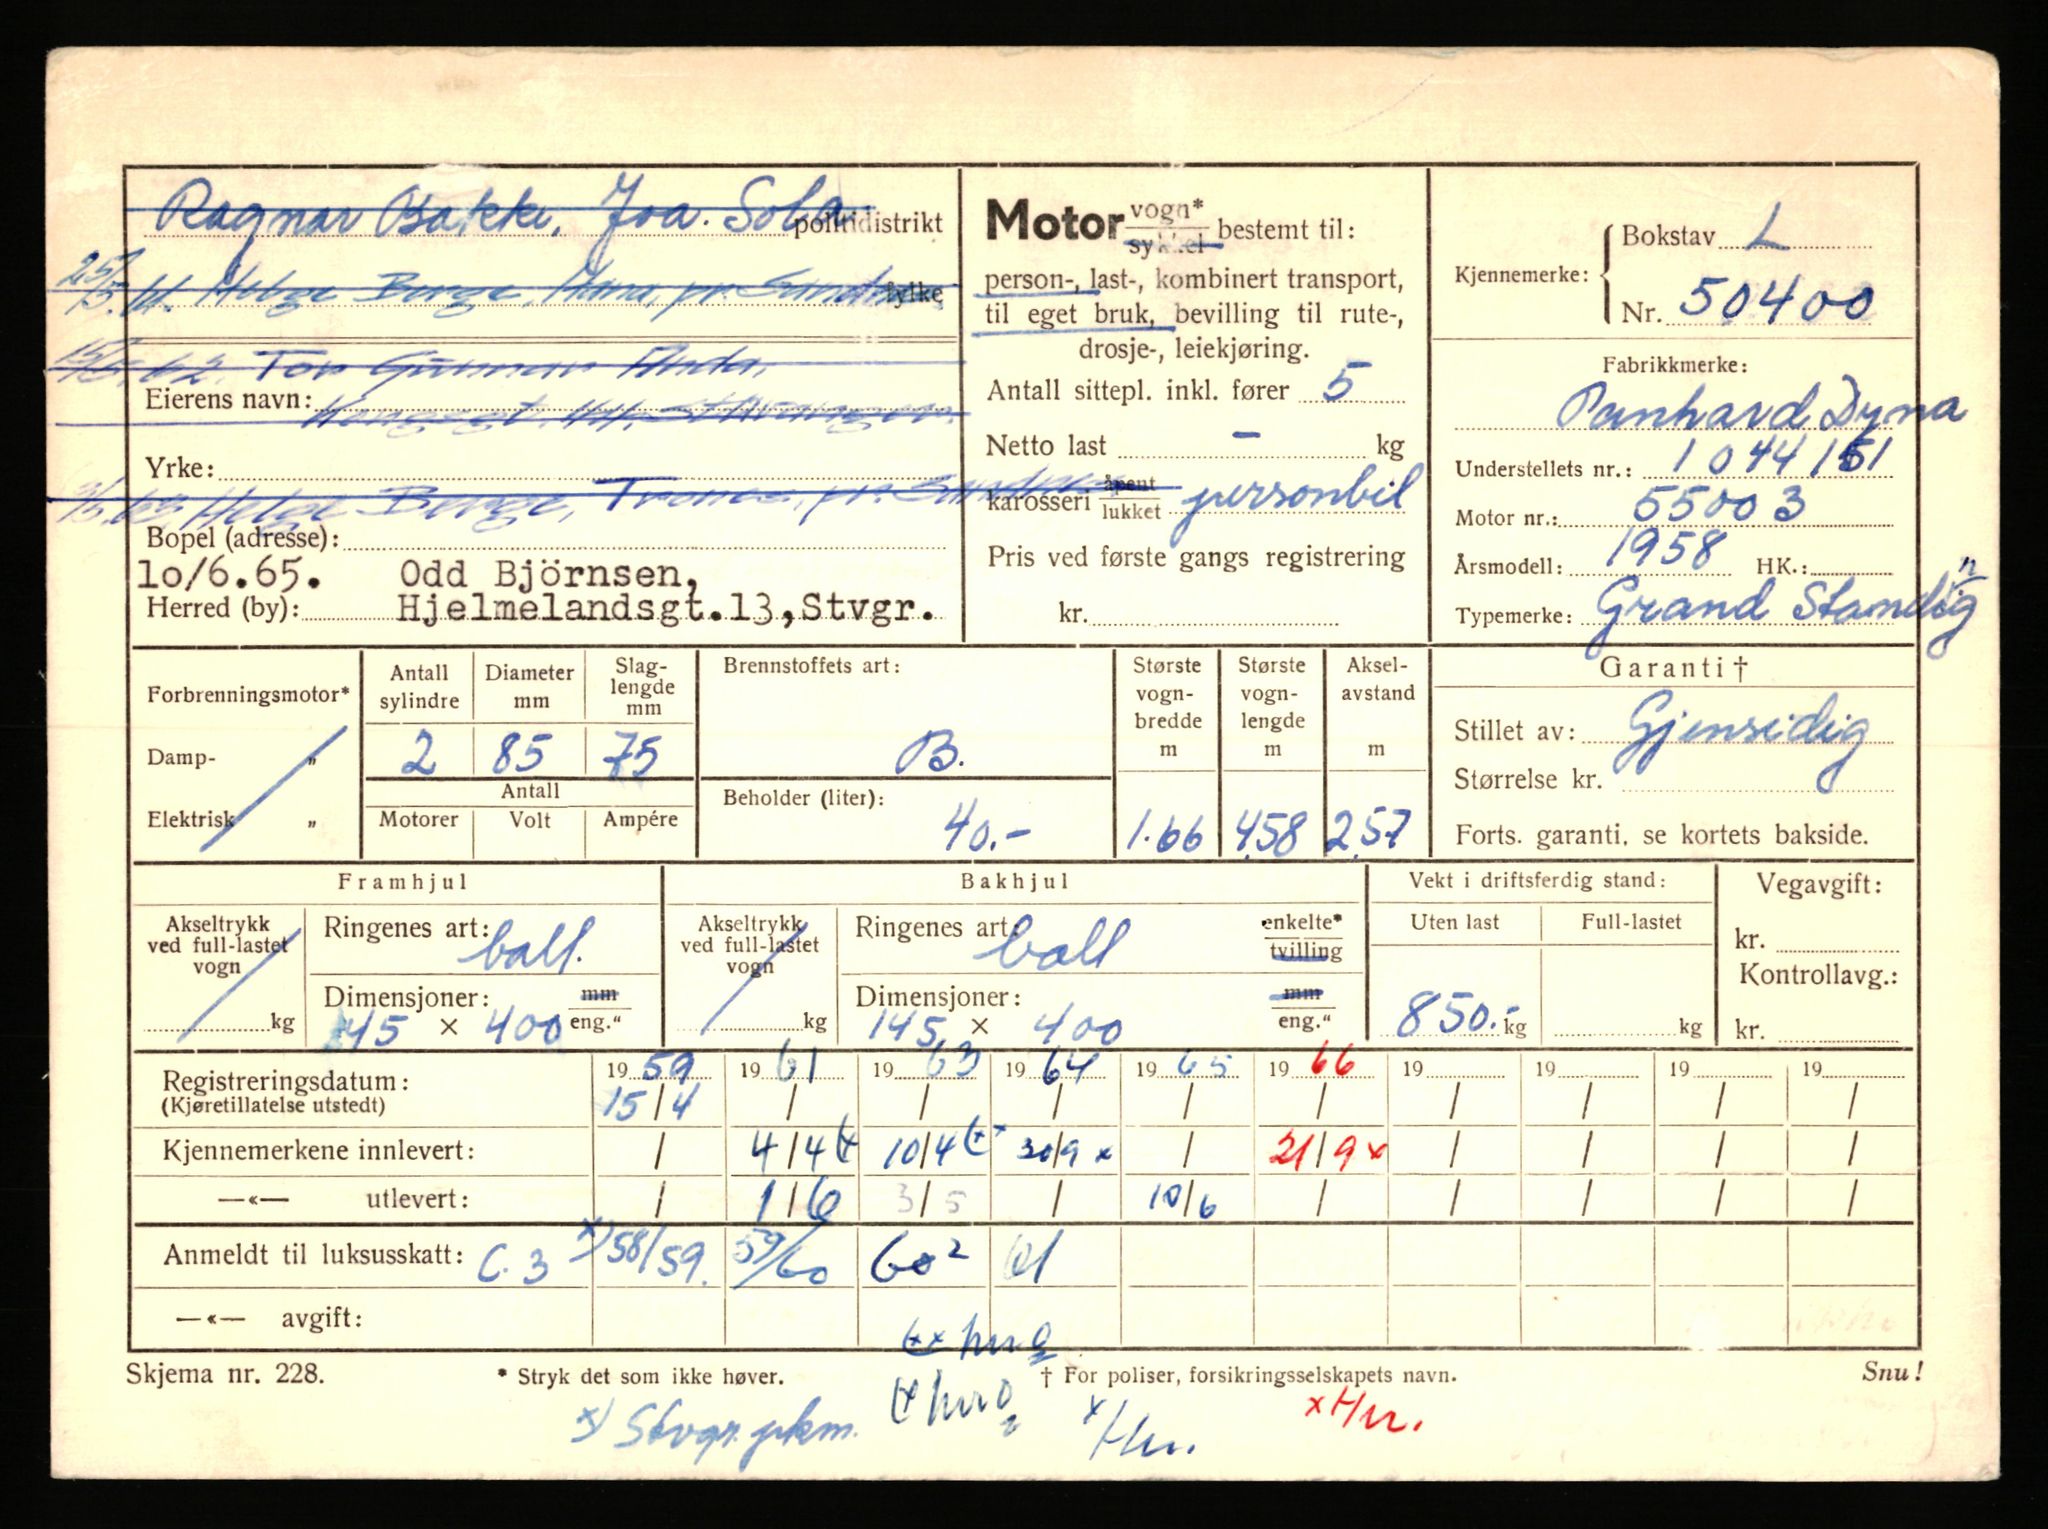 Ragnar Bakke, Joa. Sola politidistrikt
25/5.61. Helge Berge, Hana, pr. Sandnes fylke
15/6.62. Tor Gunnar Anda,
Eierens navn: Kongsgt. 44, Stavanger.
Yrke:
3/5.63 Helge Berge, Trones, pr. Sandnes
Bopel (adresse):
10/6.65. Odd Björnsen,
Herred (by): Hjelmelandsgt.13,Stvgr.
Motor vogn* / sykkel bestemt til:
person-, last-, kombinert transport,
til eget bruk, bevilling til rute-,
drosje-, leiekjøring.
Antall sittepl. inkl. fører 5
Netto last - kg
karosseri åpent / lukket personbil
Pris ved første gangs registrering
kr.
Kjennemerke: Bokstav L
Nr. 50400
Fabrikkmerke:
Panhard Dyna
Understellets nr.: 1044151
Motor nr.: 55003
Årsmodell: 1958 HK.:
Typemerke: Grand Standing
Forbrenningsmotor*
Damp- „
Elektrisk „
Antall sylindre Diameter mm Slag-lengde mm
2 85 75
Antall
Motorer Volt Ampére
Brennstoffets art:
B.
Beholder (liter):
40.-
Største vogn-bredde m Største vogn-lengde m Aksel-avstand m
1.66 4,58 2,57
Garanti †
Stillet av: Gjensidig
Størrelse kr.
Forts. garanti, se kortets bakside.
Framhjul
Akseltrykk ved full-lastet vogn kg
Ringenes art: ball.
Dimensjoner: mm / eng."
145 × 400
Bakhjul
Akseltrykk ved full-lastet vogn kg
Ringenes art: ball enkelte* / tvilling
Dimensjoner: mm / eng."
145 × 400
Vekt i driftsferdig stand:
Uten last Full-lastet
850.- kg kg
Vegavgift:
kr.
Kontrollavg.:
kr.
Registreringsdatum: 1959 1961 1963 1964 1965 1966 19 19 19 19
(Kjøretillatelse utstedt) 15/4 / / / / / / / / /
Kjennemerkene innlevert: / 4/4 (x 10/4 (xx 30/9 x / 21/9 x / / / /
—«— utlevert: / 1/6 3/5 / 10/6 / / / / /
Anmeldt til luksusskatt: C.3 x) 58/59. 59/60 60² 61
—«— avgift:
(xx hno
Skjema nr. 228. * Stryk det som ikke høver. † For poliser, forsikringsselskapets navn. Snu!
x) Stvgr. pkm. (x hno x/Hn. xHn.